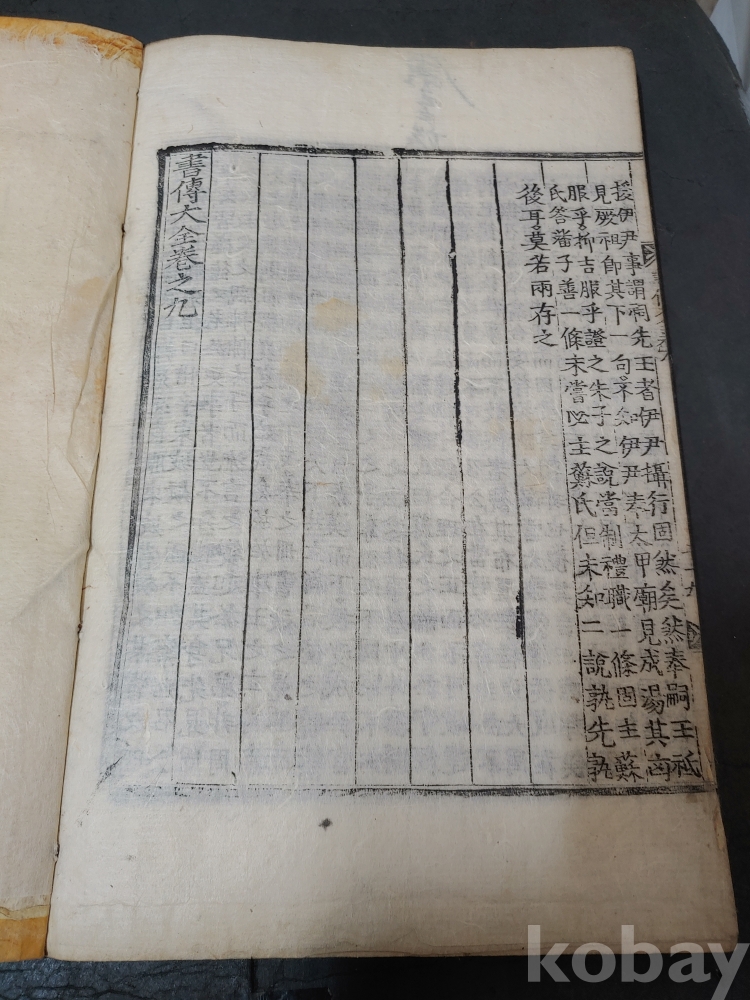 援伊尹事謂祠先王者伊尹攝行固然矣然奉嗣王祗
見厥祖卽其下一句不知伊尹奉太甲廟見成湯其凶
服乎抑吉服乎證之朱子之說當制禮職一條固主蘇
氏答潘子善一條未嘗必主蘇氏但未知二說孰先孰
後耳莫若兩存之
書傳大全卷之九
kobay